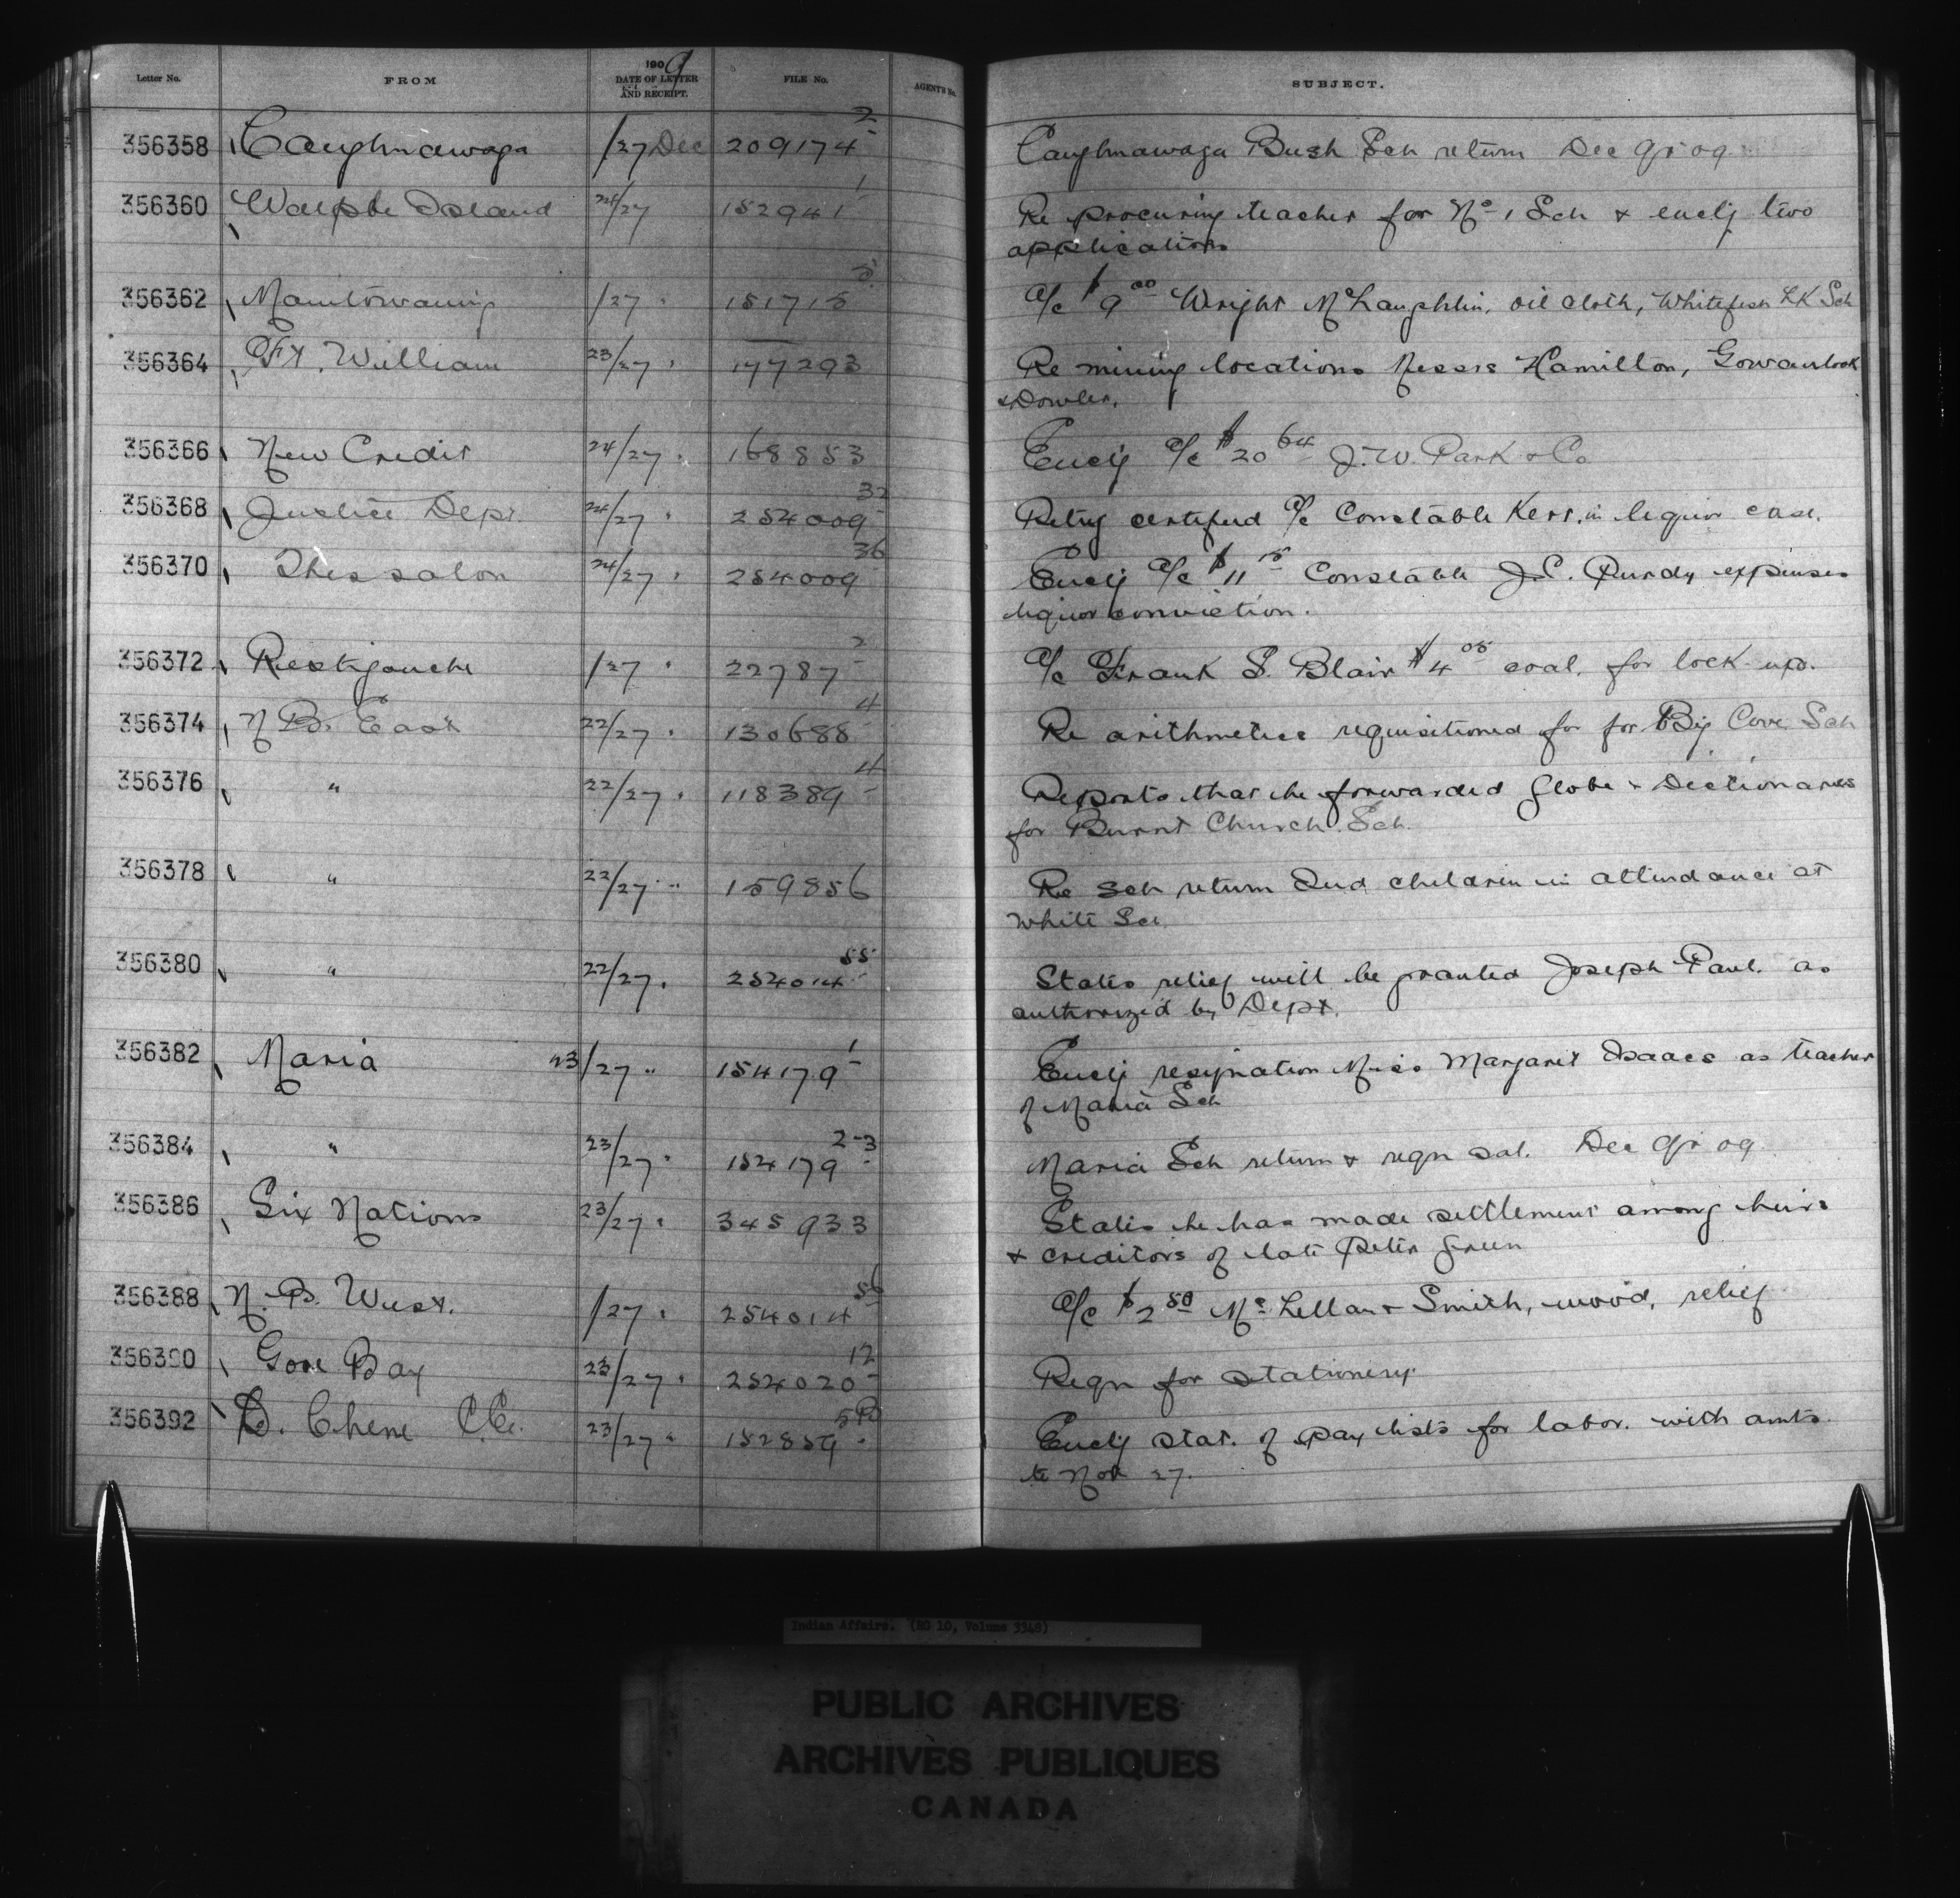 Letter No. FROM 1909 DATE OF LETTER AND RECEIPT. FILE No. AGENT'S No. SUBJECT.
356358 Caughnawaga /27 Dec 209174-2 Caughnawaga Bush Sch return Dec qr 09
356360 Walpole Island 24/27 152941-1 Re procuring teacher for No 1 Sch & encly two
applications
356362 Manitowaning /27 " 151715-5 a/c $9.00 Wright McLaughlin, oil cloth, Whitefish LK Sch
356364 Ft. William 23/27 " 177293 Re mining locations Messrs Hamilton, Gowanlock
& Dowler.
356366 New Credit 24/27 " 168853 Encly a/c $20.64 J.W. Park & Co
356368 Justice Dept. 24/27 " 254009-32 Retng certified a/c Constable Kerr. in liquor case.
356370 Thessalon 24/27 " 254009-36 Encly a/c $11.15 Constable J.C. Purdy expenses
liquor conviction.
356372 Restigouche /27 " 22787-2 a/c Frank S. Blair $4.05 coal. for lock-up.
356374 N B. East 22/27 " 130688-4 Re arithmetics requisitioned for for Big Cove Sch
356376 " 22/27 " 118389-4 Reports that he forwarded Globe & Dictionaries
for Burnt Church Sch.
356378 " 22/27 " 159856 Re Sch return Ind children in attendance at
White Sch
356380 " 22/27 " 254014-55 States relief will be granted Joseph Paul. as
authorized by Dept.
356382 Maria 23/27 " 154179-1 Encly resignation Miss Margaret Isaacs as teacher
of Maria Sch
356384 " 23/27 " 154179-2-3 Maria Sch return & reqn sal. Dec qr 09
356386 Six Nations 23/27 " 345933 States he has made settlement among heirs
& creditors of late Peter Green
356388 N. B. West. /27 " 254014-56 a/c $2.50 McLellan & Smith, wood, relief
356390 Gore Bay 23/27 " 254020-12 Reqn for stationery
356392 D. Chene C.E. 23/27 " 152859 Encly stat. of pay lists for labor. with amts.
to Nov 27.
Indian Affairs. (RG 10, Volume 3348)
PUBLIC ARCHIVES
ARCHIVES PUBLIQUES
CANADA